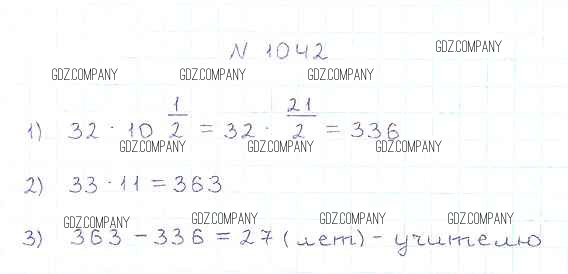 N 1042
GDZ.COMPANY
GDZ.COMPANY GDZ.COMPANY GDZ.COMPANY
1) 32 · 10 1/2 = 32 · 21/2 = 336
GDZ.COMPANY GDZ.COMPANY GDZ.COMPANY
2) 33 · 11 = 363
GDZ.COMPANY GDZ.COMPANY GDZ.COMPANY GDZ.COMPANY
3) 363 - 336 = 27 (лет) - учителю